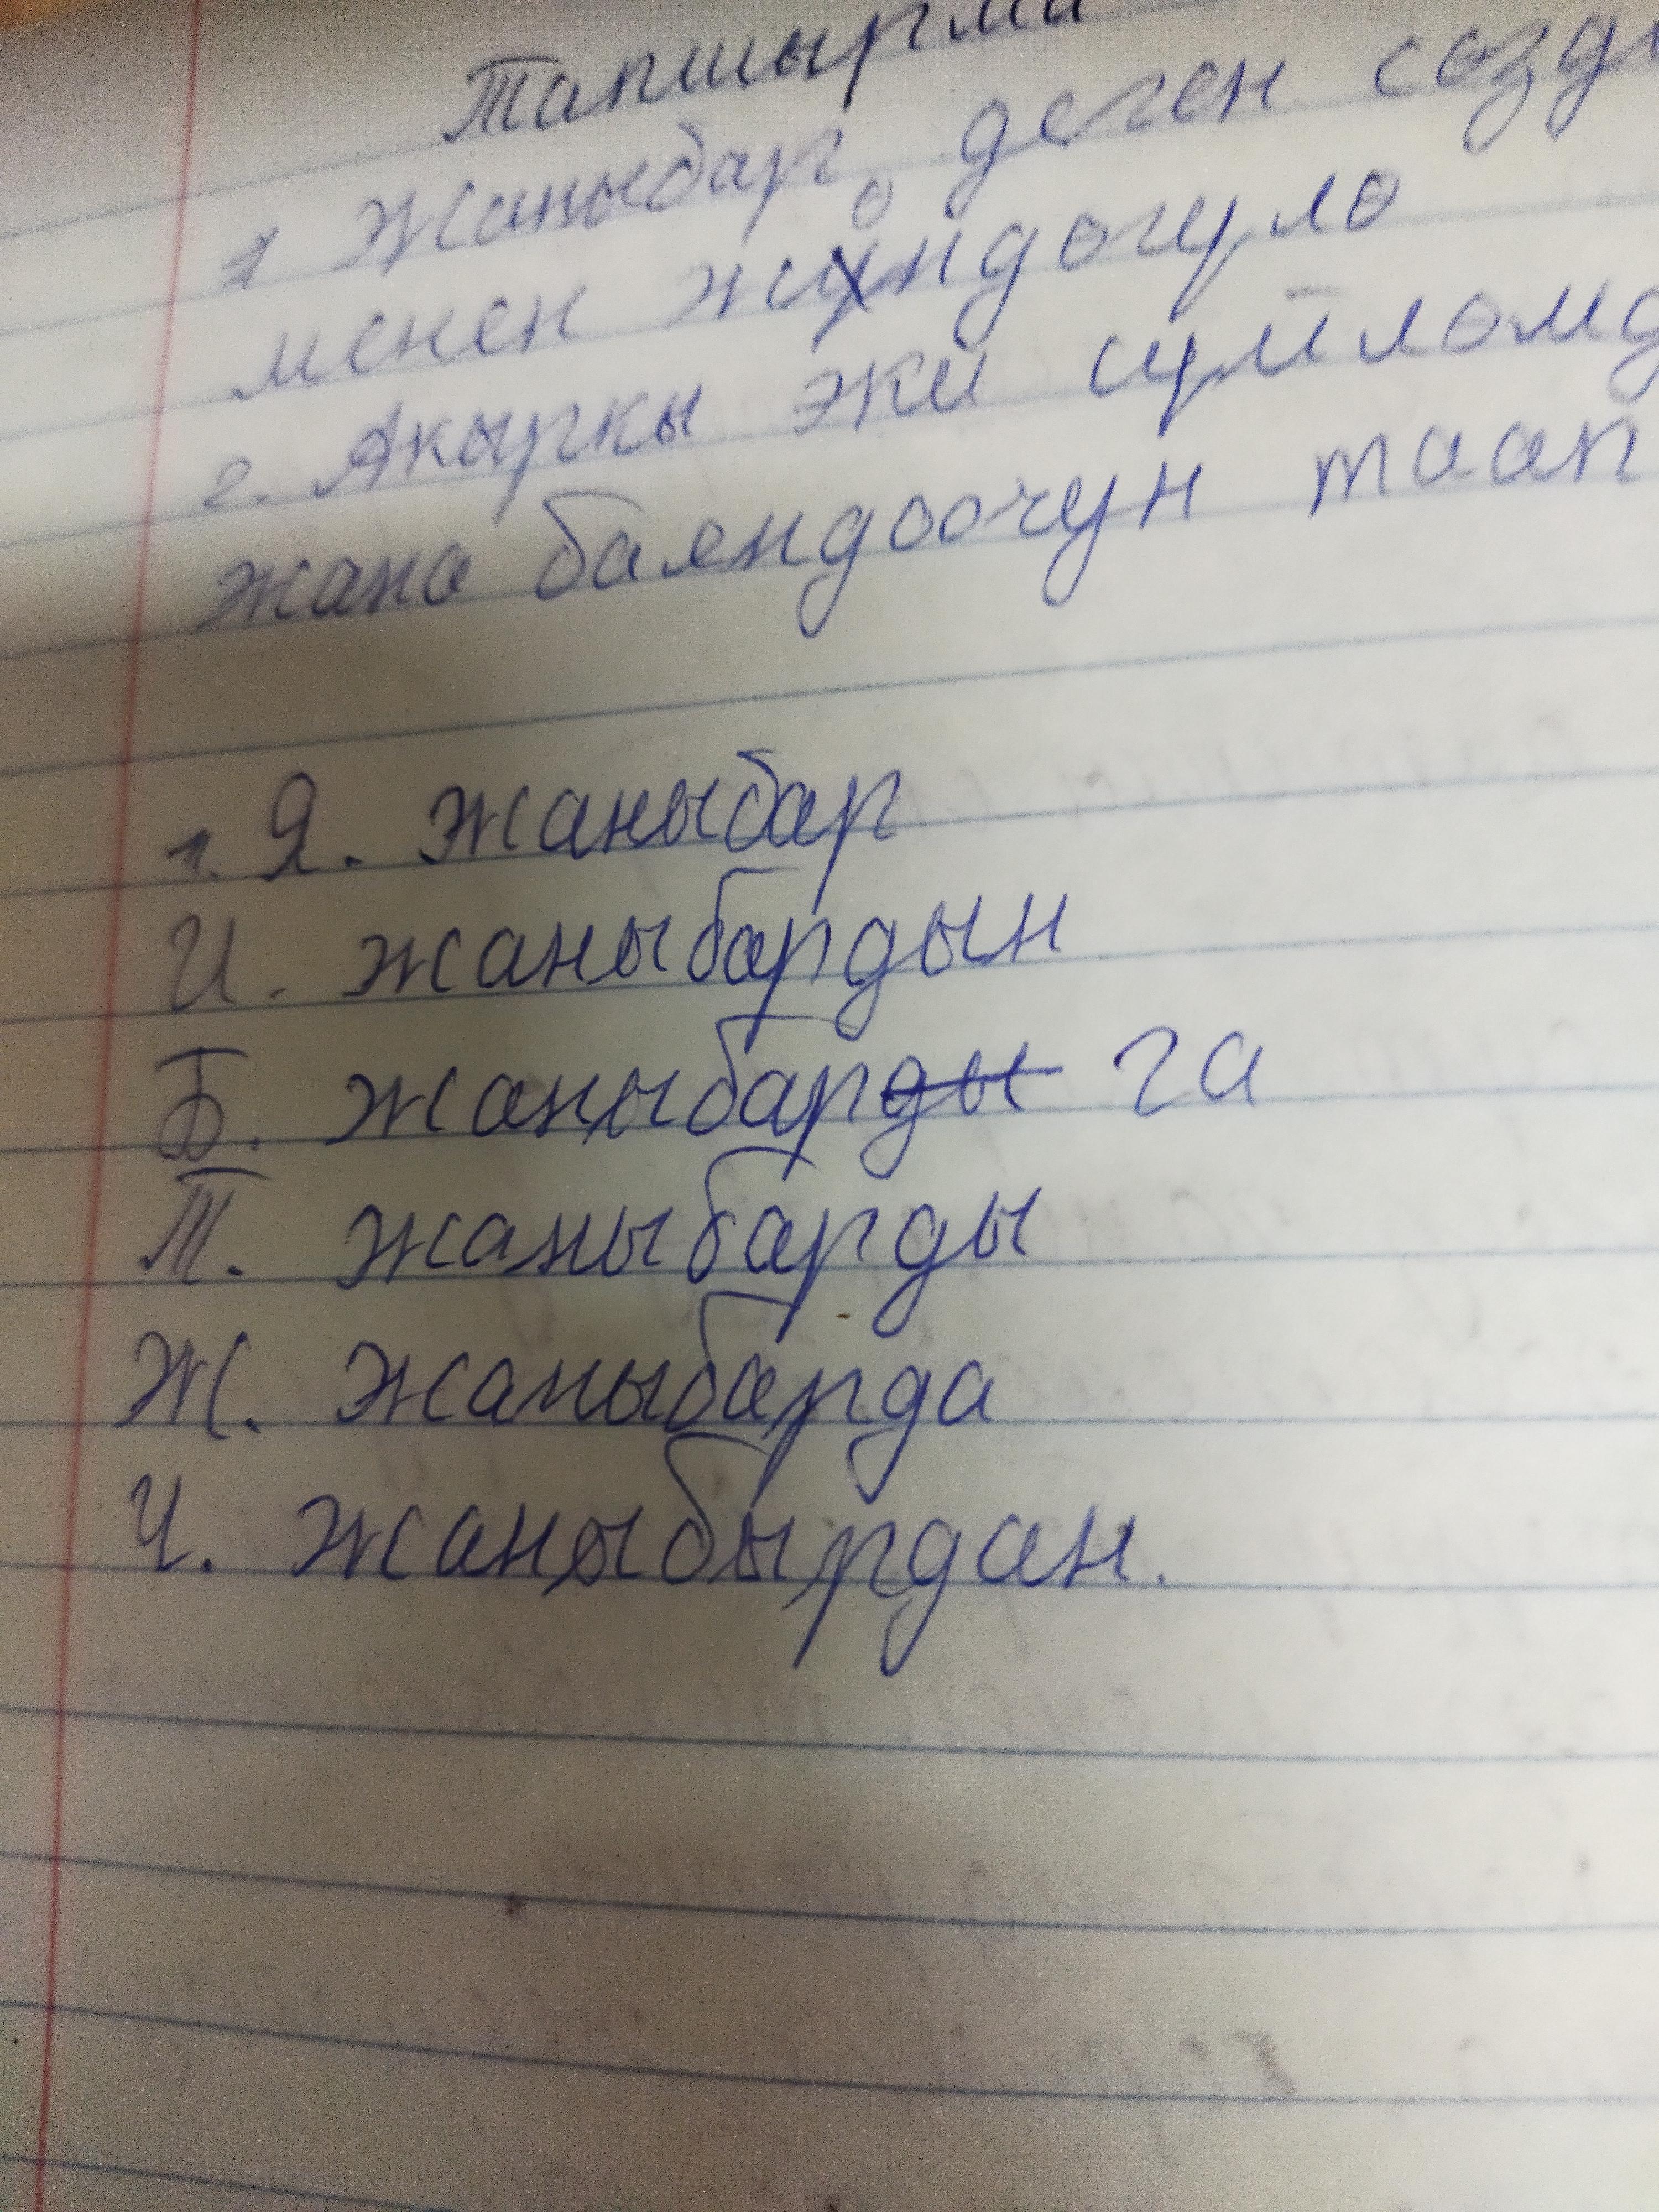 Тапшырма
1 Жаныбар деген сөзд
менен жөндөгүлө
2. Акыркы эки сүйлөмд
жана баяндоочун таап
1. Я. жаныбар
И. жаныбардын
Б. жаныбарды га
Т. жаныбарды
Ж. жаныбарда
Ч. жаныбырдан.